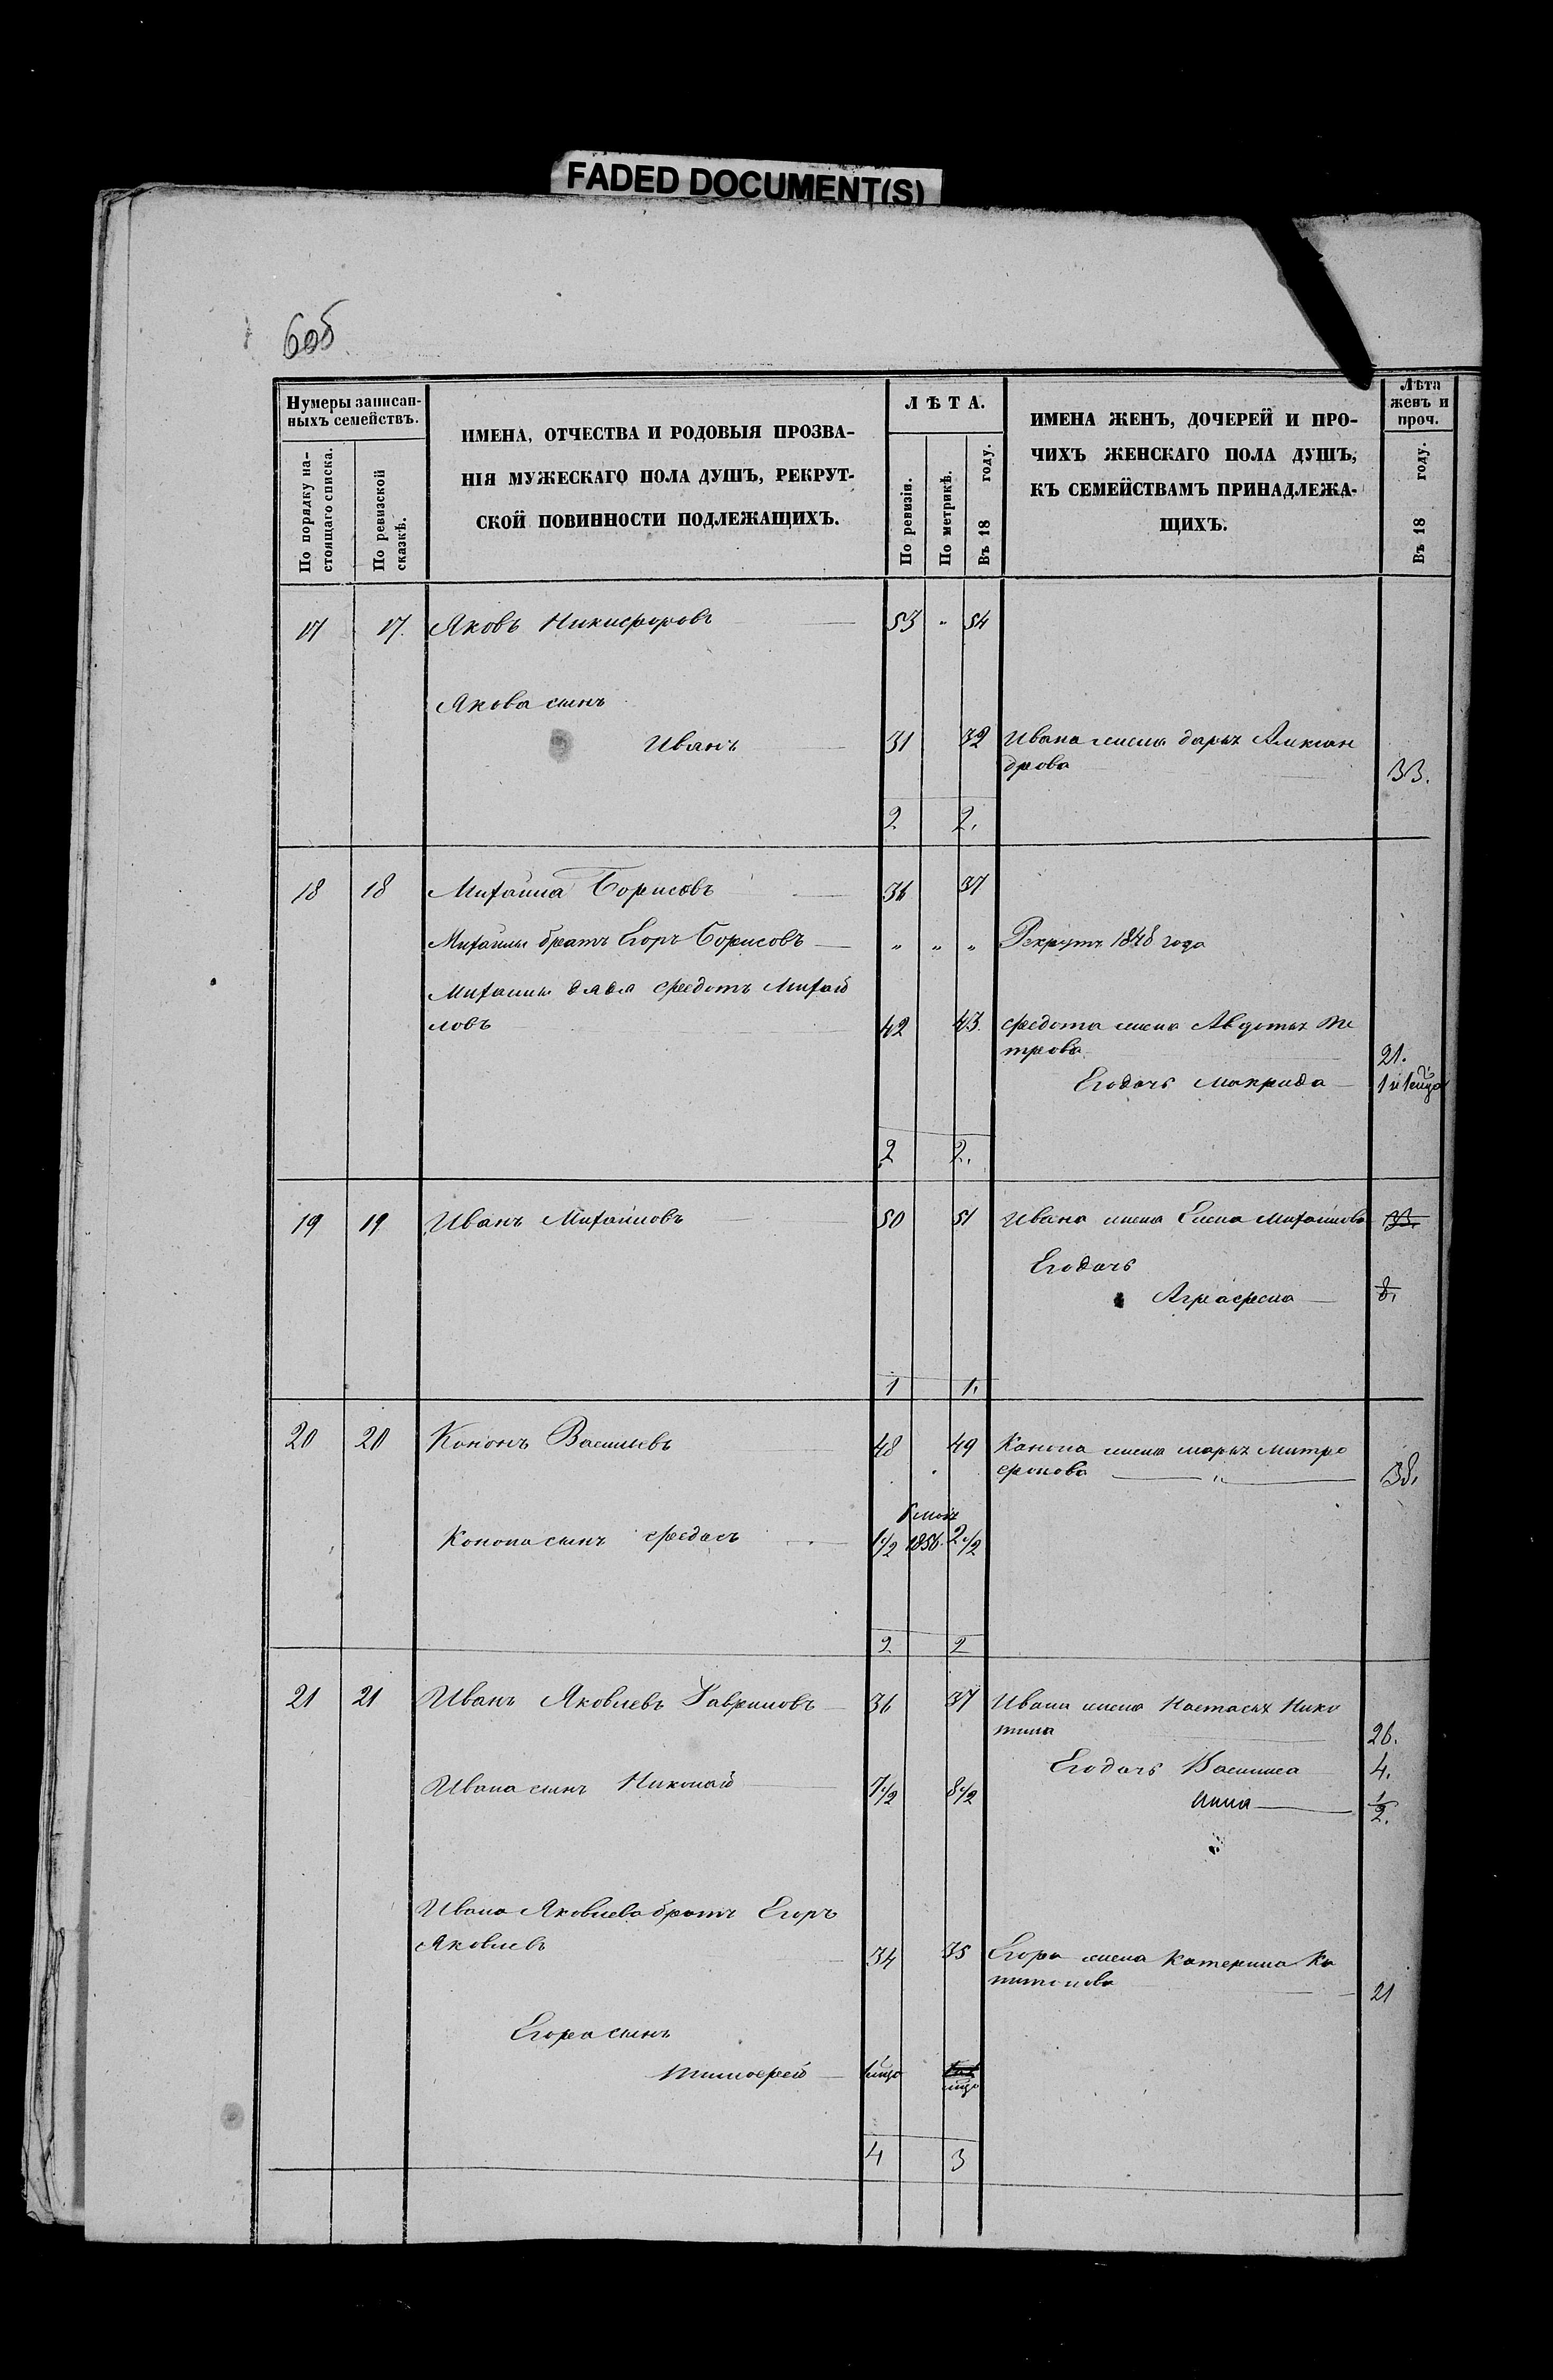 FADED DOCUMENT(S)
Нумеры записан-
ныхъ семействъ.
По порядку на-
стоящаго списка.
По ревизской
сказкѣ.
ИМЕНА, ОТЧЕСТВА И РОДОВЫЯ ПРОЗВА-
НІЯ МУЖЕСКАГО ПОЛА ДУШЪ, РЕКРУТ-
СКОЙ ПОВИННОСТИ ПОДЛЕЖАЩИХЪ.
ЛѢТА.
По ревизіи.
По метрикѣ.
Въ 18 году.
ИМЕНА ЖЕНЪ, ДОЧЕРЕЙ И ПРО-
ЧИХЪ ЖЕНСКАГО ПОЛА ДУШЪ,
КЪ СЕМЕЙСТВАМЪ ПРИНАДЛЕЖА-
ЩИХЪ.
Лѣта
женъ и
проч.
Въ 18 году.
17 17. Яковъ Никифоровъ 53 " 54
Якова сынъ
Иванъ 31 32 Ивана жена Дарья Алексан
дрова 33.
2. 2.
18 18 Михаила Борисовъ 36 37
Михаилы братъ Егоръ Борисовъ " " " Рекрутъ 1848 года
Михаилы дядя Федотъ Михай
ловъ 42 43. Федота жена Авдотья Пе
трова 21.
Его дочь Макрида
2 2.
19 19 Иванъ Михайловъ 50 51 Ивана жена Елена Михайлова 33.
Его дочь
Аграфена 8.
1 1.
20 20 Кононъ Васильевъ 48 49 Конона жена Марья Митро
фонова 38.
Конона сынъ Федосъ 1 1/2 1856. 2 1/2
2 2
21 21 Иванъ Яковлевъ Гавриловъ 36 37 Ивана жена Настасья Ники
тина 26.
Его дочь Василиса 4.
Ивана сынъ Николай 7 1/2 8 1/2 Анна 1/2.
Ивана Яковлева братъ Егоръ
Яковлевъ 34 35 Егора жена Катерина Ка
питонова 21
Егора сынъ
Тимофей
4 3